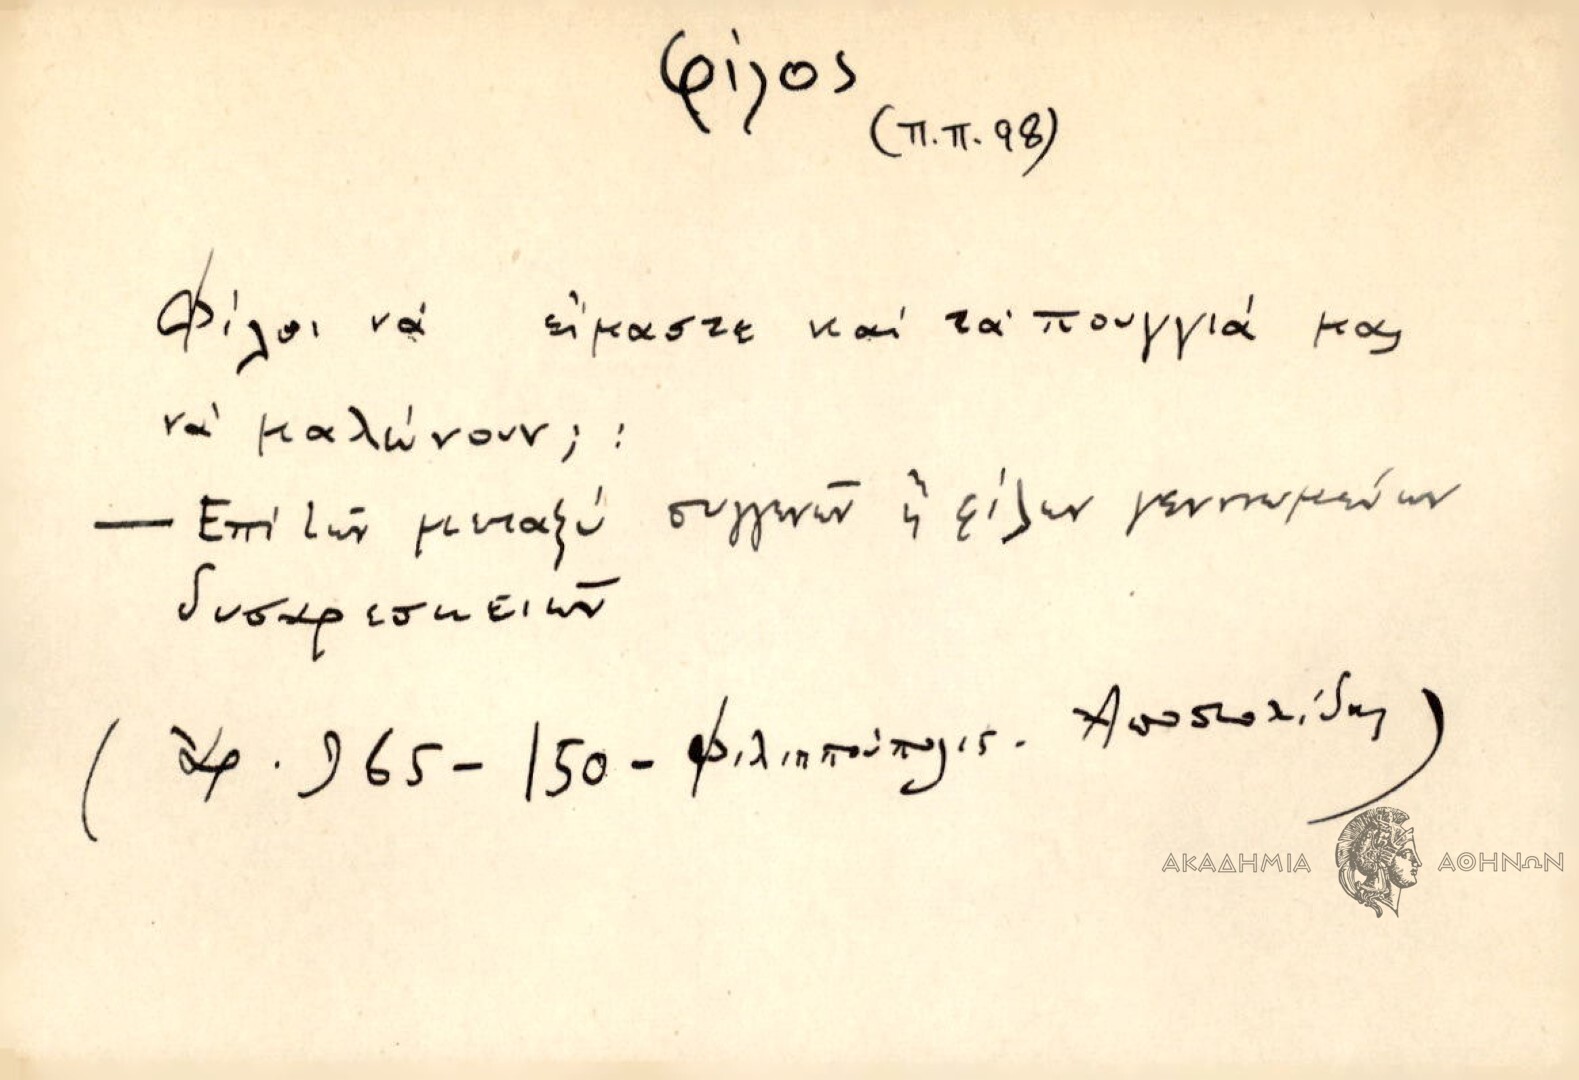 φίλος
(π.π. 98)
Φίλοι νά εἴμαστε καί τά πουγγιά μας
νά μαλώνουν; :
— Ἐπί τῶν μεταξύ συγγενῶν ἤ φίλων γεννωμένων
δυσαρεσκειῶν
( Ἀρ. 965 - 150 - Φιλιππούπολις. Ἀποστολίδης )
ΑΚΑΔΗΜΙΑ ΑΘΗΝΩΝ